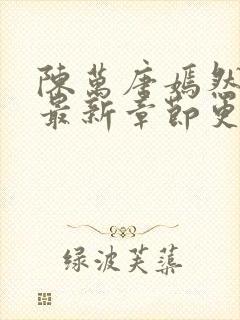 陳萬唐嫣然
最新章節更
绿波芙蕖